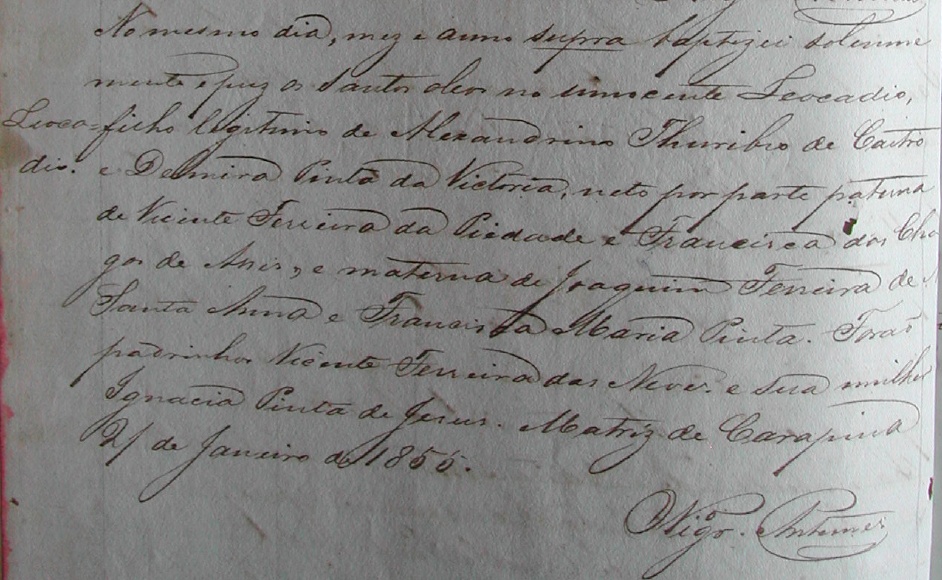 No mesmo dia, mez e anno supra baptizei solemne
mente e puz os Santos oleos no innocente Leocadio,
Leoca= filho legitimo de Alexandrino Thuribio de Castro
dio. e Delmira Pinta da Victoria, neto por parte paterna
de Vicente Ferreira da Piedade e Francisca das Cha
gas de Assis, e materna de Joaquim Ferreira de
Santa Anna e Francisca Maria Pinta. Forão
padrinhos Vicente Ferreira das Neves e sua mulher
Ignacia Pinta de Jesus. Matriz de Carapina
21 de Janeiro de 1855.
Vigrº. Antunes